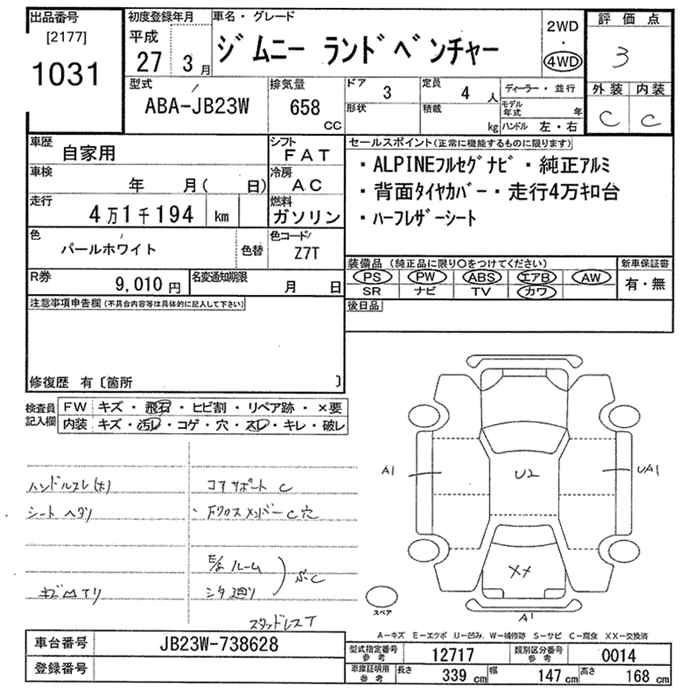 出品番号 初度登録年月 車名・グレード 評価点
[2177] 平成 2WD
1031 27 年 3 月 ジムニー ランドベンチャー ・ 4WD 3
型式 排気量 ドア 3 定員 4 人 ディーラー・並行 外装 内装
ABA-JB23W 658 CC 形状 積載 kg モデル年式 年 C C
ハンドル 左・右
車歴 自家用 シフト FAT セールスポイント(正常に機能するものに限ります)
車検 年 月( 日) 冷房 AC ・ALPINEフルセグナビ・純正アルミ
走行 4万1千194 km 燃料 ガソリン ・背面タイヤカバー・走行4万キロ台
・ハーフレザーシート
色 パールホワイト 色替 色コード Z7T
装備品(純正品に限り○をつけてください) 新車保証書
R券 9,010円 名変通知期限 月 日 PS PW ABS エアB AW 有・無
SR ナビ TV カワ
注意事項申告欄(不具合内容等は具体的に記入して下さい) 後日品
修復歴 有〔箇所 〕
検査員 FW キズ・飛石・ヒビ割・リペア跡・×要
記入欄 内装 キズ・汚レ・コゲ・穴・スレ・キレ・破レ
A1 U2 UA1
ハンドルスレ(大) コアサポート C
シート ヘタリ ・Fクロスメンバー C穴
E/ルーム
シタ廻り
XX
スタッドレスT スペア A1
A-キズ E-エクボ U-凹み W-補修跡 S-サビ C-腐食 XX-交換済
車台番号 JB23W-738628 型式指定番号 参考 12717 類別区分番号 参考 0014
登録番号 車庫証明用 参考 長さ 339 cm 幅 147 cm 高さ 168 cm